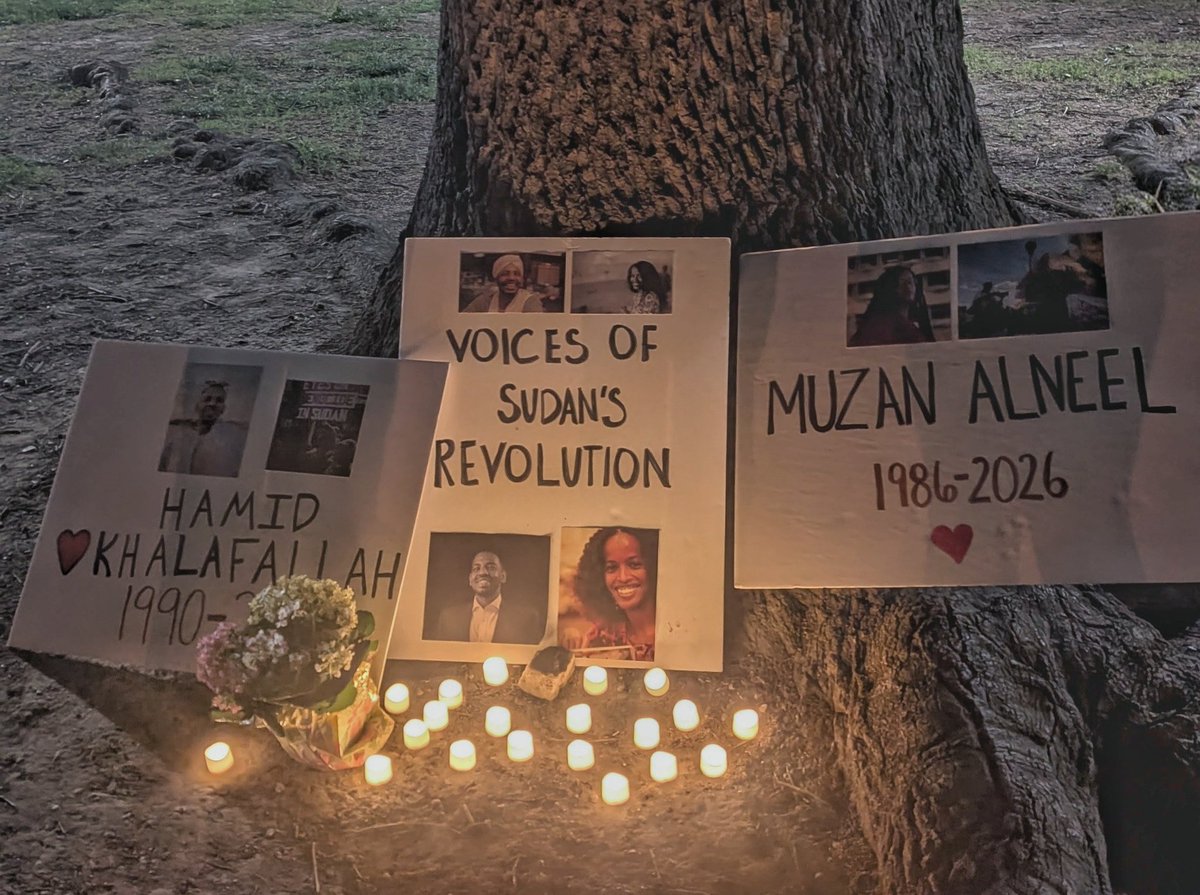 HAMID
KHALAFALLAH
1990-
IN SUDAN
VOICES OF
SUDAN'S
REVOLUTION
MUZAN ALNEEL
1986-2026